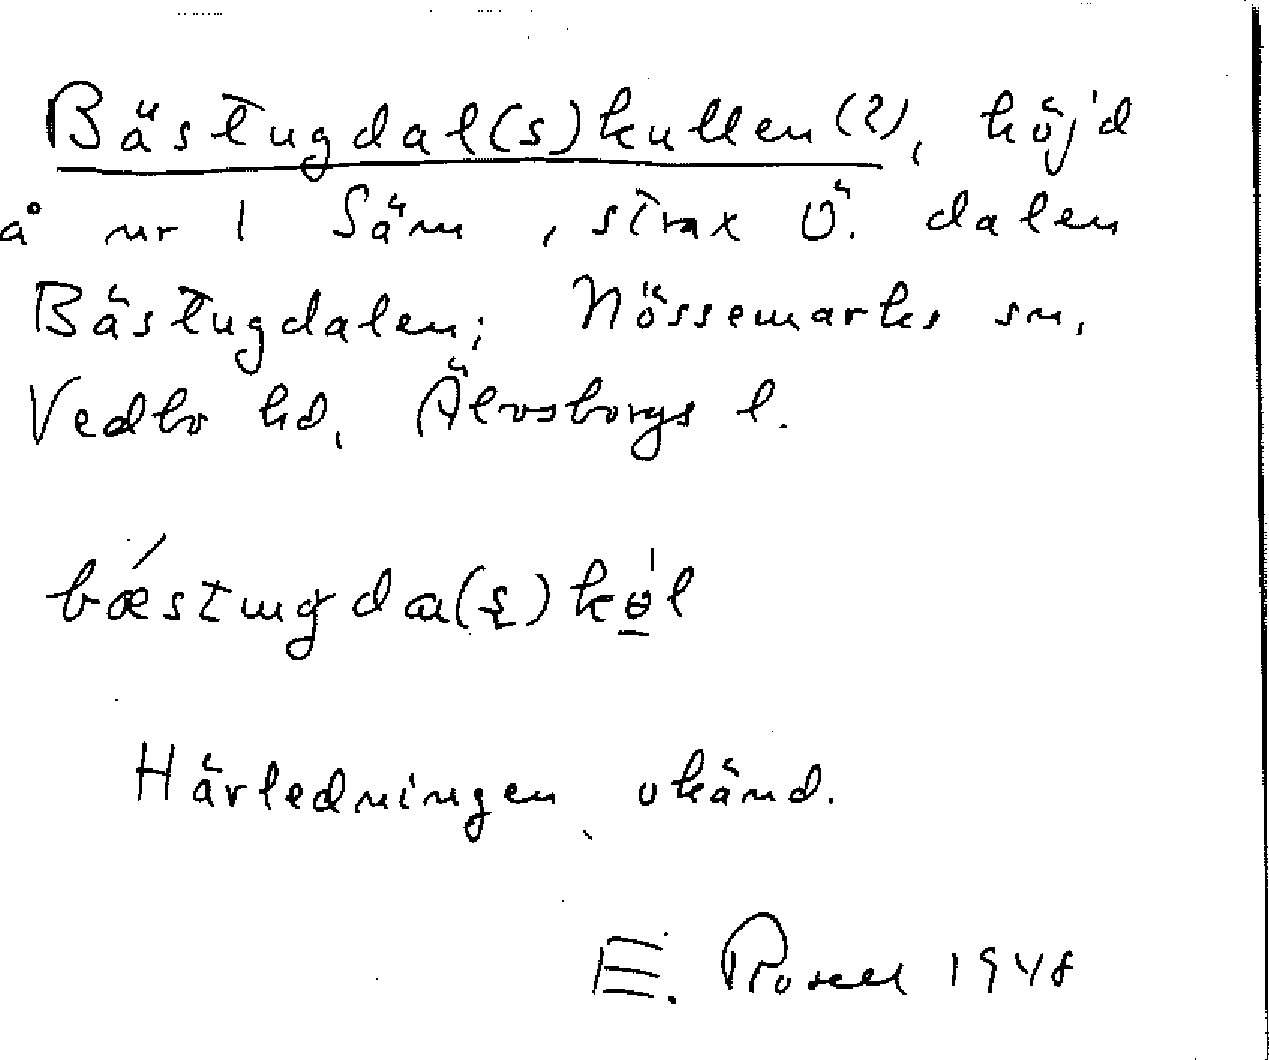 Bästugdal(s)kullen(?), höjd
å nr 1 Säm, strax Ö. dalen
Bästugdalen; Nössemarks sn,
Vedbo hd, Älvsborgs l.
bæstugda(s)kөl
Härledningen okänd.
E. Rosell 1948